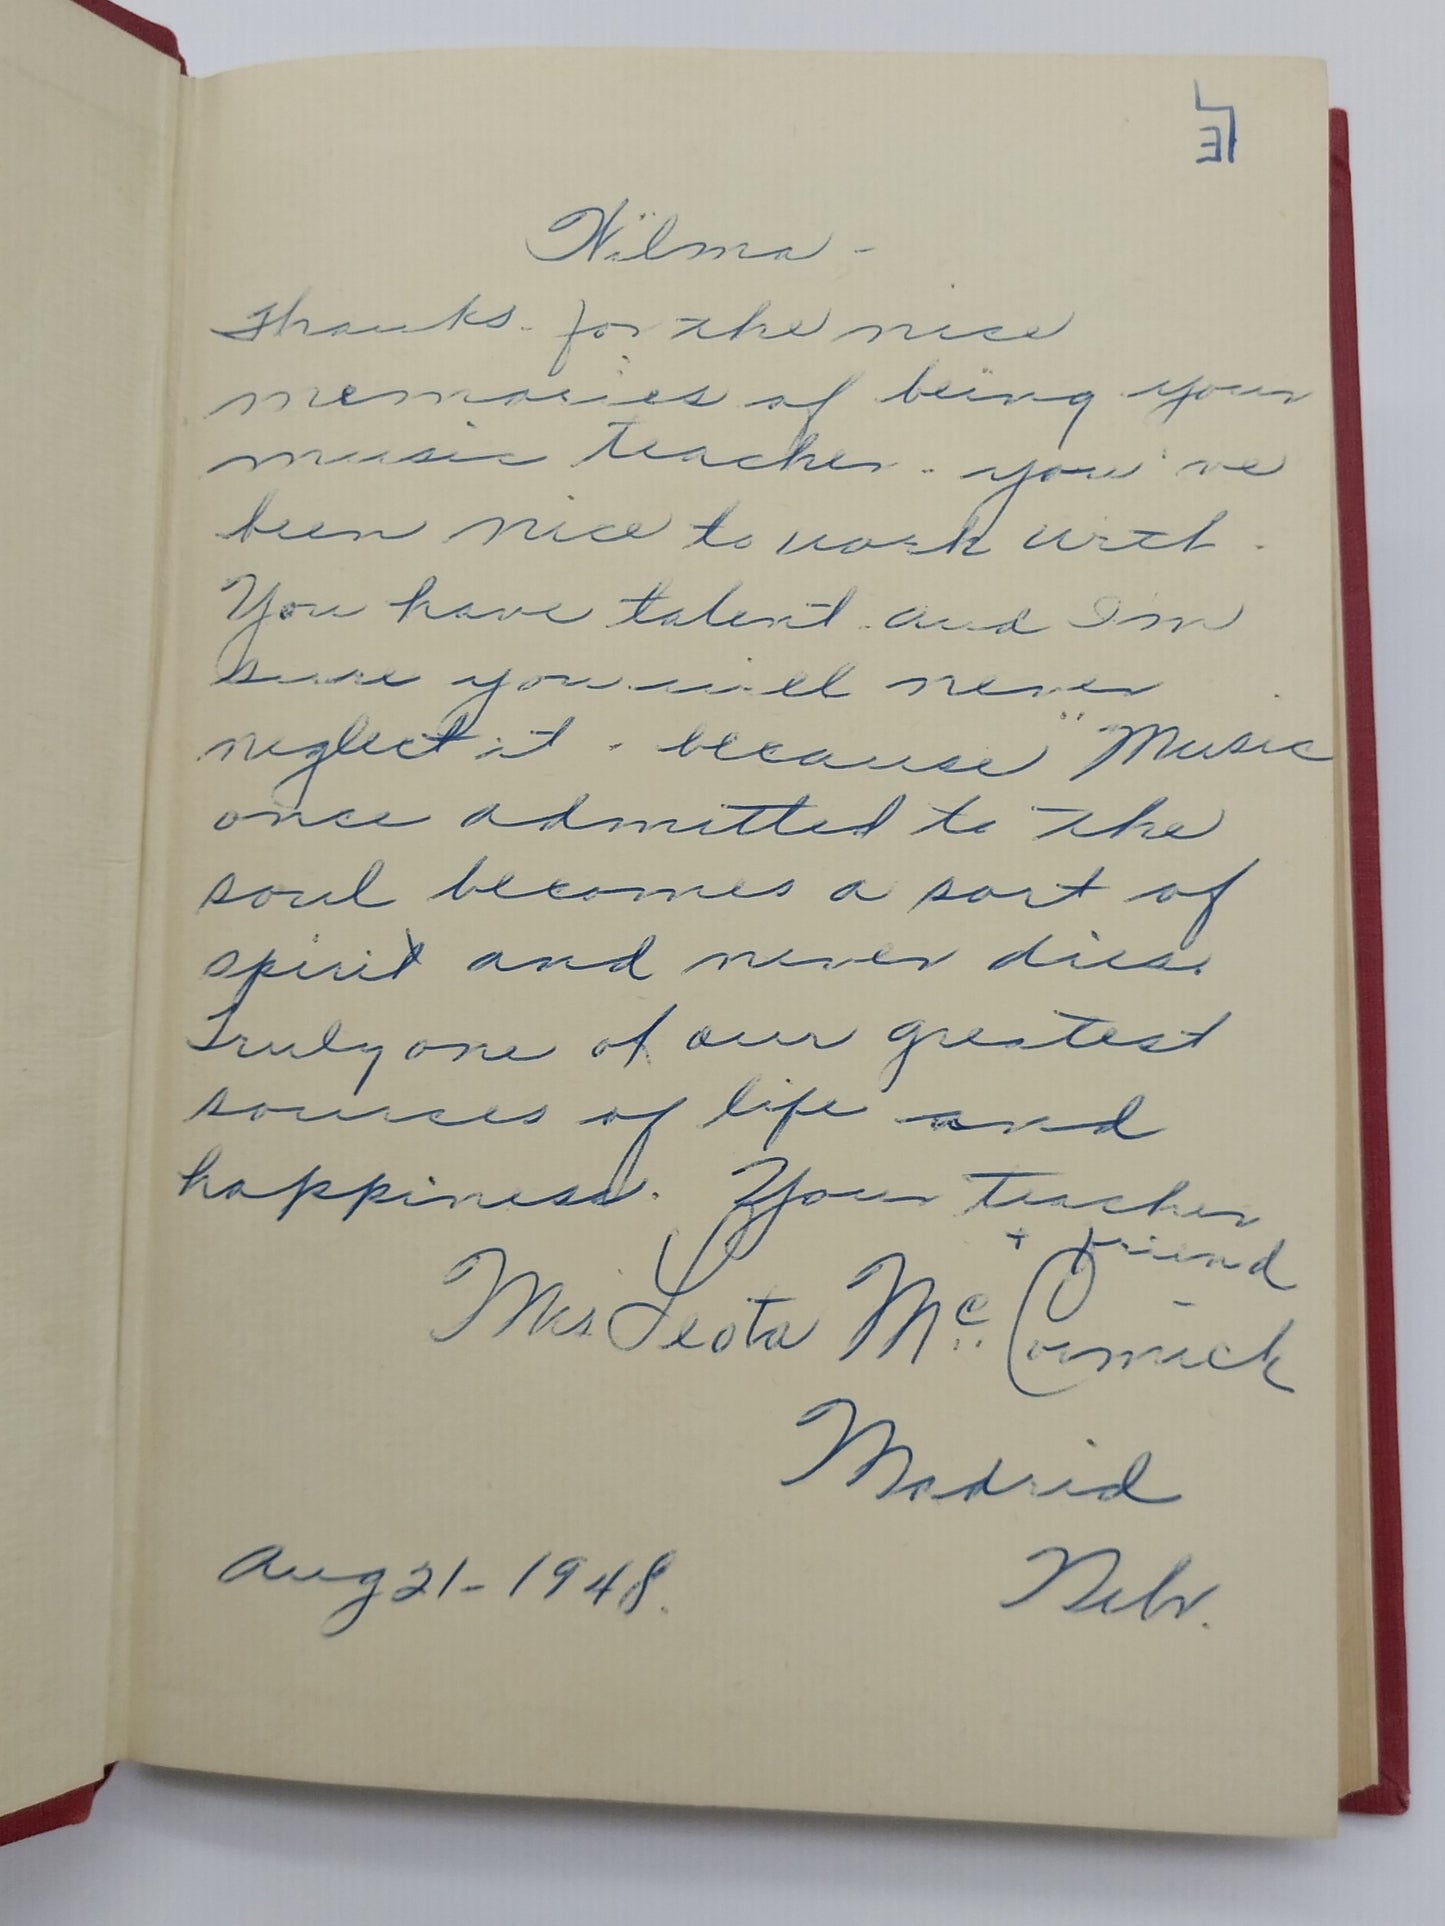 Wilma -
Thanks - for the nice
memories of being your
music teacher - you've
been nice to work with -
You have talent and I'm
sure you will never
neglect it - because "Music
once admitted to the
soul becomes a sort of
spirit and never dies.
Truly one of our greatest
sources of life and
happiness. Your teacher
+ friend
Mrs Leota Mc Cormick
Madrid
Nebr.
Aug 21 - 1948.